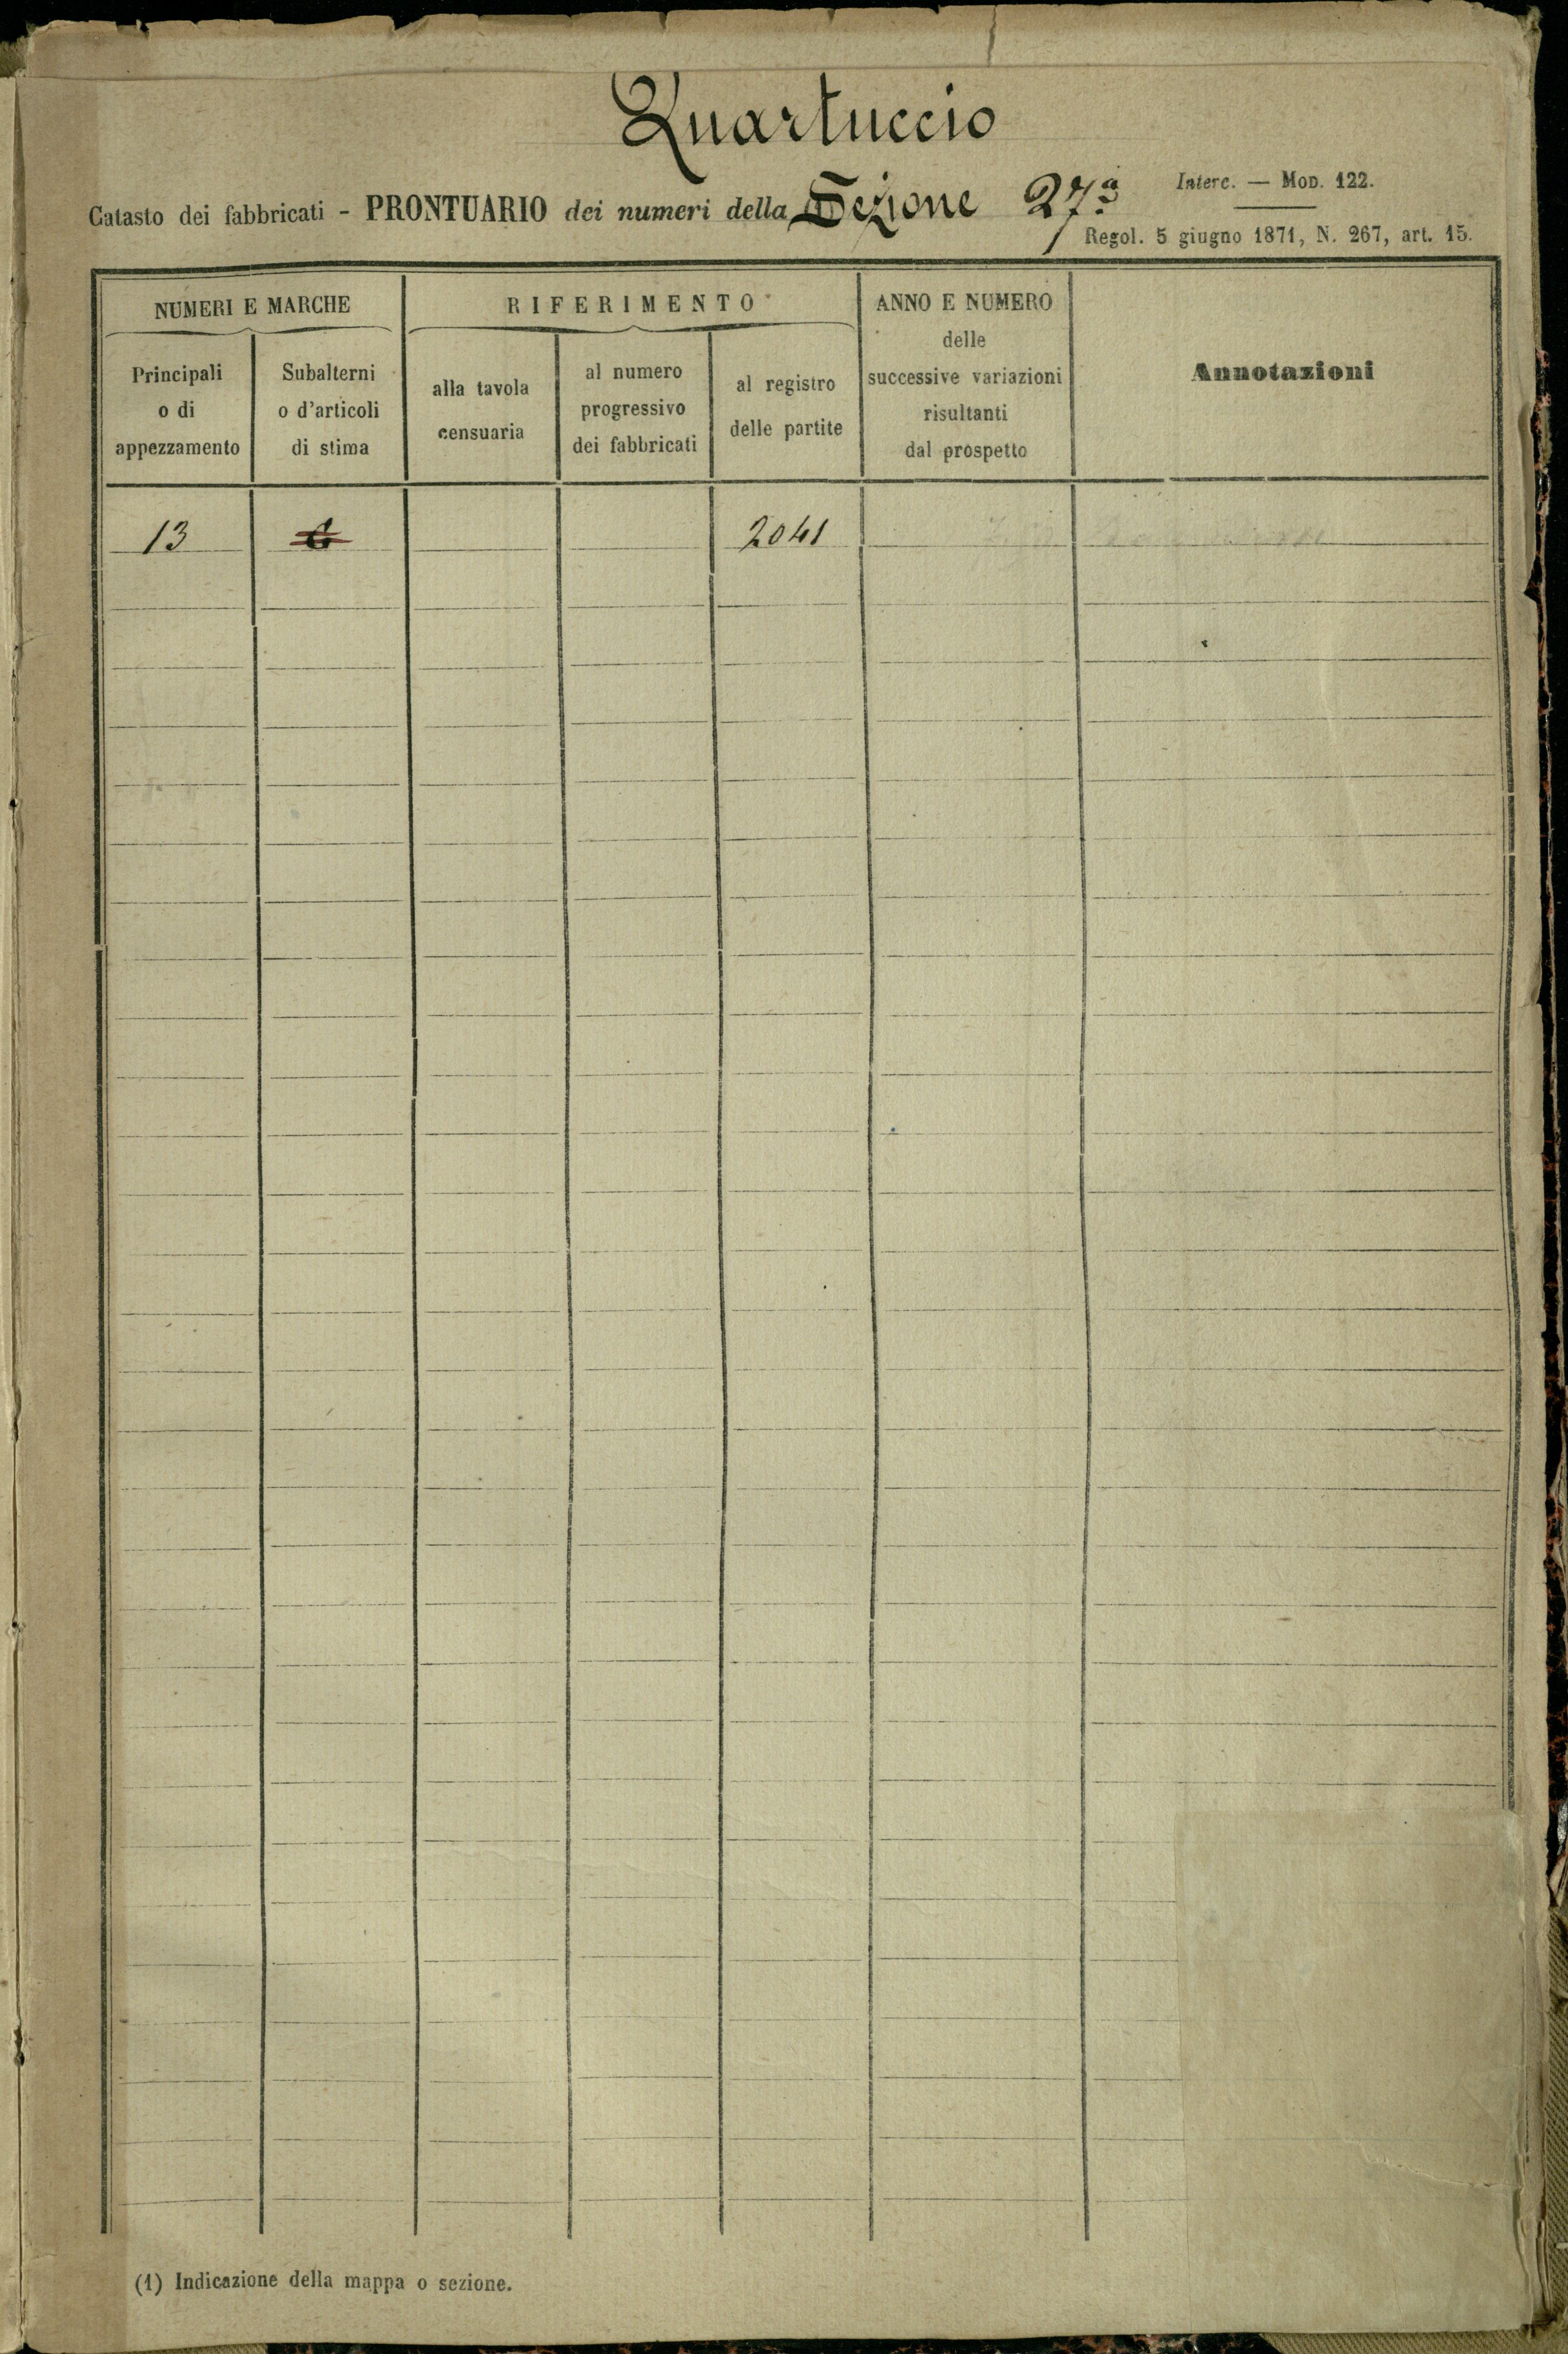 Quartuccio
Interc. — MOD. 122.
Catasto dei fabbricati - PRONTUARIO dei numeri della Sezione 27ª
Regol. 5 giugno 1871, N. 267, art. 15.
NUMERI E MARCHE
RIFERIMENTO
ANNO E NUMERO
delle
successive variazioni
risultanti
dal prospetto
Annotazioni
Principali
o di
appezzamento
Subalterni
o d'articoli
di stima
alla tavola
censuaria
al numero
progressivo
dei fabbricati
al registro
delle partite
13 2041
(1) Indicazione della mappa o sezione.